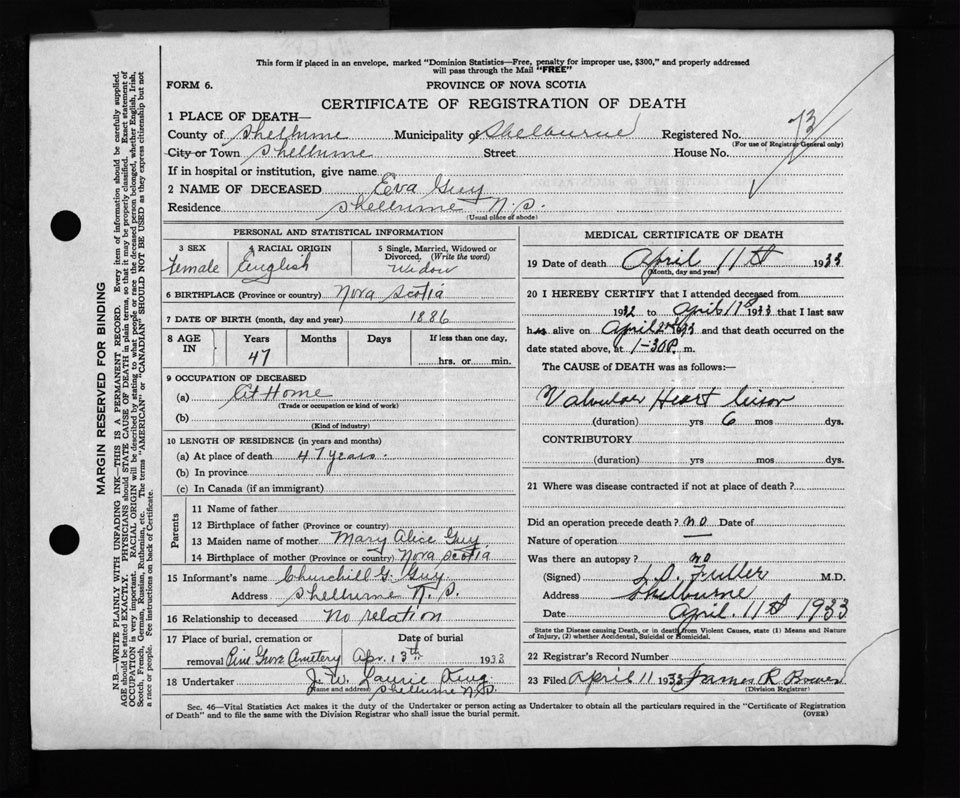 This form if placed in an envelope, marked "Dominion Statistics—Free, penalty for improper use, $300," and properly addressed
will pass through the Mail "FREE"
FORM 6.
PROVINCE OF NOVA SCOTIA
CERTIFICATE OF REGISTRATION OF DEATH
1 PLACE OF DEATH—
County of Shelburne Municipality of Shelburne Registered No. 73
(For use of Registrar General only)
City or Town Shelburne Street House No.
If in hospital or institution, give name
2 NAME OF DECEASED Eva Guy
Residence Shelburne N.S.
(Usual place of abode)
PERSONAL AND STATISTICAL INFORMATION
3 SEX 4 RACIAL ORIGIN 5 Single, Married, Widowed or
Divorced. (Write the word)
Female English Widow
6 BIRTHPLACE (Province or country) Nova Scotia
7 DATE OF BIRTH (month, day and year) 1886
8 AGE IN Years Months Days If less than one day,
47 hrs. or min.
9 OCCUPATION OF DECEASED
(a) At Home
(Trade or occupation or kind of work)
(b)
(Kind of industry)
10 LENGTH OF RESIDENCE (in years and months)
(a) At place of death 47 years.
(b) In province
(c) In Canada (if an immigrant)
Parents
11 Name of father
12 Birthplace of father (Province or country)
13 Maiden name of mother Mary Alice Guy
14 Birthplace of mother (Province or country) Nova Scotia
15 Informant's name Churchill G. Guy
Address Shelburne N.S.
16 Relationship to deceased No relation
17 Place of burial, cremation or Date of burial
removal Pine Grove Cemetery Apr. 13th 1933
18 Undertaker J. W. Laurie King
(Name and address) Shelburne N.S.
MEDICAL CERTIFICATE OF DEATH
19 Date of death April 11th 1933
(Month, day and year)
20 I HEREBY CERTIFY that I attended deceased from
1932 to April 11th 1933 that I last saw
her alive on April 2nd 1933 and that death occurred on
date stated above, at 1-30 P. m.
The CAUSE of DEATH was as follows:—
Valvular Heart lesion
(duration) yrs 6 mos dys.
CONTRIBUTORY
(duration) yrs mos dys.
21 Where was disease contracted if not at place of death?
Did an operation precede death? no Date of
Nature of operation —
Was there an autopsy? no
(Signed) L.O. Fuller M.D.
Address Shelburne
Date April. 11th 1933
State the Disease causing Death, or in death from Violent Causes, state (1) Means and Nature
of Injury, (2) whether Accidental, Suicidal or Homicidal.
22 Registrar's Record Number
23 Filed April 11 1933 James R Bower
(Division Registrar)
Sec. 46—Vital Statistics Act makes it the duty of the Undertaker or person acting as Undertaker to obtain all the particulars required in the "Certificate of Registration
of Death" and to file the same with the Division Registrar who shall issue the burial permit.
(OVER)
MARGIN RESERVED FOR BINDING
N.B.—WRITE PLAINLY WITH UNFADING INK—THIS IS A PERMANENT RECORD. Every item of information should be carefully supplied.
AGE should be stated EXACTLY. PHYSICIANS should STATE CAUSE OF DEATH in plain terms, so that it may be properly classified. Exact statement of
OCCUPATION is very important. RACIAL ORIGIN will be described by stating to what people or race the deceased person belonged, whether English, Irish,
Scotch, French, German, Russian, Ruthenian, etc. The terms "AMERICAN" or "CANADIAN" SHOULD NOT BE USED as they express citizenship but not
a race or people. See instructions on back of Certificate.